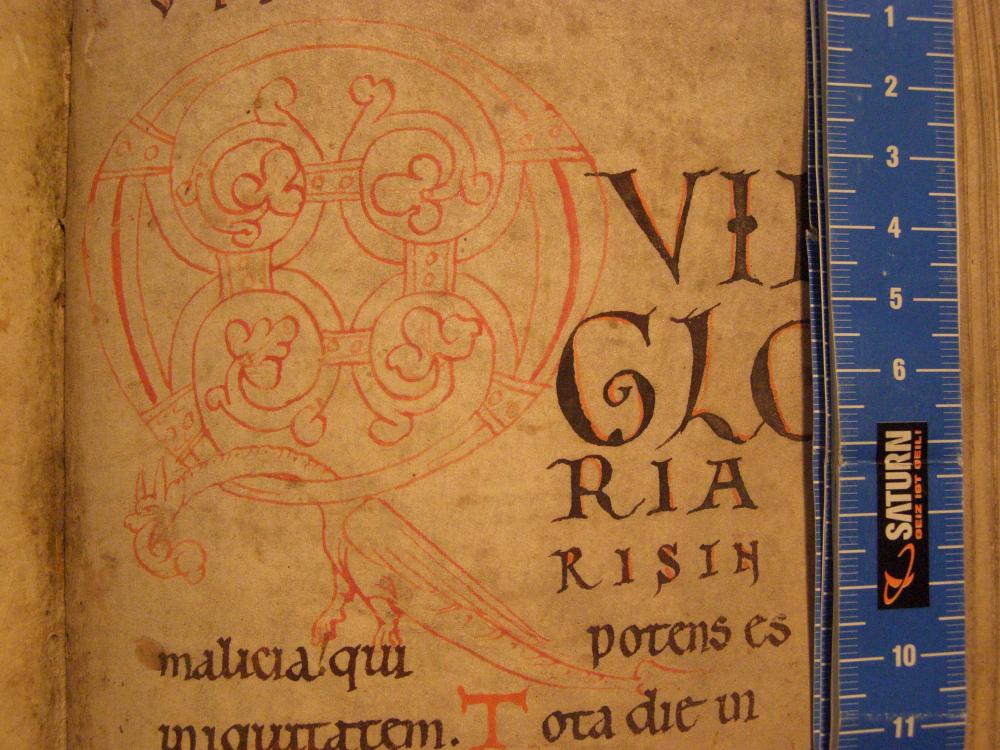 Q VI
GLO
RIA
RISIN
malicia/qui potens es
iniquitatem. Tota die in
1
2
3
4
5
6
SATURN
GEIZ IST GEIL!
10
11